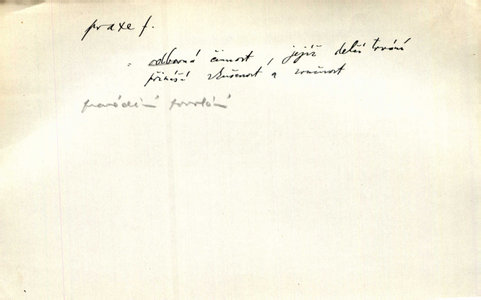 praxe f.
odborná činnost, jejíž delší trvání
přináší zkušenost a zručnost
provádění povolání